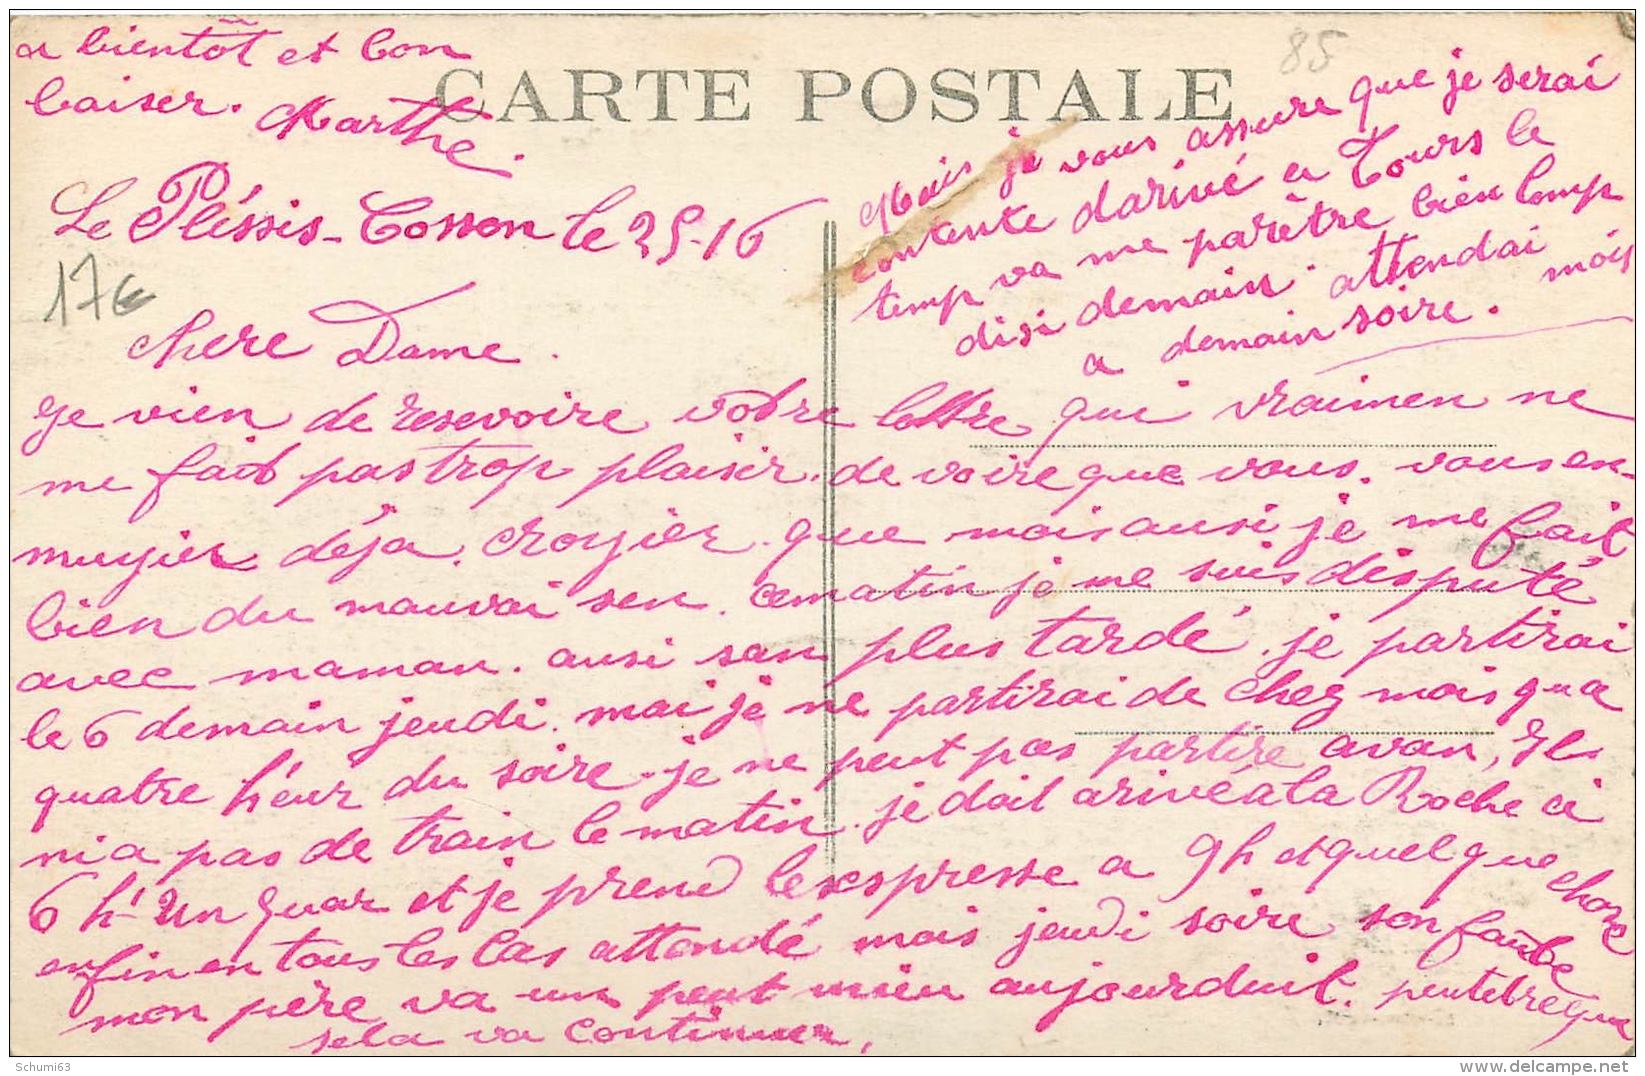 CARTE POSTALE
85
17€
Le Pléssis-Cosson le 25-16
chere Dame.
je vien de resevoire votre lettre qui vraimen ne
me fait pas trop plaisir. de voire que vous. vous en-
nuyier déja. croyier que mois ausi je me fait
bien du mauvai sen. ce matin je me suis disputé
avec maman. ausi san plus tardé. je partirai
le 6 demain jeudi. mai je ne partirai de chez mois qu a
quatre h'eur du soire. je ne peut pas partire avan, Il
ni a pas de train le matin. je doit arivé a la Roche a
6 h- un quar et je prend l'exspresse a 9h et quelque chose
enfin en tous les cas attendé mois jeudi soire son faute
mon père va un peut mieu aujourduit. peutetre que
sela va continuer,
Mais je vous assure que je serai
contente d'arivé a Tours le
temp va me parêtre bien lomp
disi demain. attendai mois
a demain soire.
a bientôt et bon
baiser. Marthe.
Schumi63
www.delcampe.net